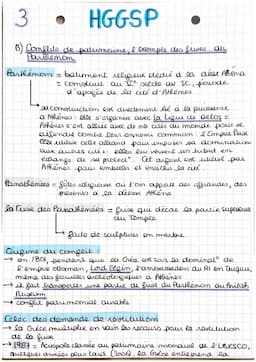 3 HGGSP
B) Conflits de patrimoine, l'exemple des frises du
Parthénon
Parthénon = batiment religieux dédié à la déesse Athéna
= construit au Ve siècle av JC, période
d'apogée de la cité d'Athènes
sa construction est directement lié à la puissance
d'Athènes : elle s'organise avec la Ligue de Délos =
Athènes s'est alliée avec de nb cités du monde pour se
défendre contre leur ennemi commun : l'Empire Perse
Elle utilise cette alliance pour imposer sa domination
aux autres cités : elles leur versent un tribut en
échange de sa protect°. Cet argent est utilisé par
Athènes pour embellir et enrichir la cité.
Panathénées = fêtes religieuses où l'on apport des offrandes, des
présents à la déesse Athéna
La frise des Panathénées = frise qui décore la partie supérieure
du Temple
faite de sculptures en marbre
Origine du conflit :
→ en 1801, pendant que la Grèce est sous la dominat° de
l'empire ottoman, Lord Elgin, l'ambassadeur du RU en Turquie,
mène des fouilles archéologiques à Athènes
→ il fait transporter une partie de frise du Parthénon au British
Museum
→ conflit patrimonial durable
Échec des demandes de restitutions
→ la Grèce multiplie en vain les recours pour la restitution
de la frise
→ 1987 = Acropole classée au patrimoine mondial de l'UNESCO,
quelques années plus tard (2009), la Grèce entreprend la